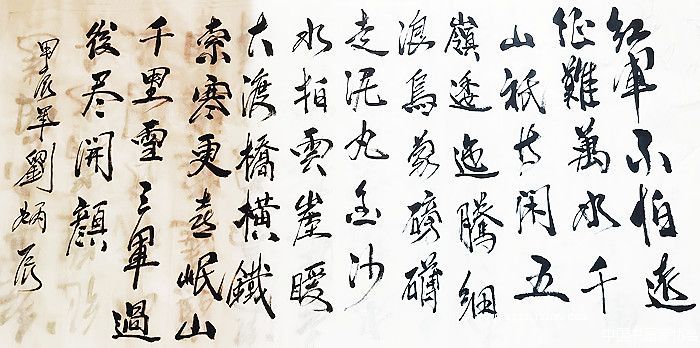 紅軍不怕遠
征難萬水千
山祇等閑五
嶺逶迤騰細
浪烏蒙磅礴
走泥丸金沙
水拍雲崖暖
大渡橋橫鐵
索寒更喜岷山
千里雪三軍過
後尽開顔
甲辰年劉炳辰